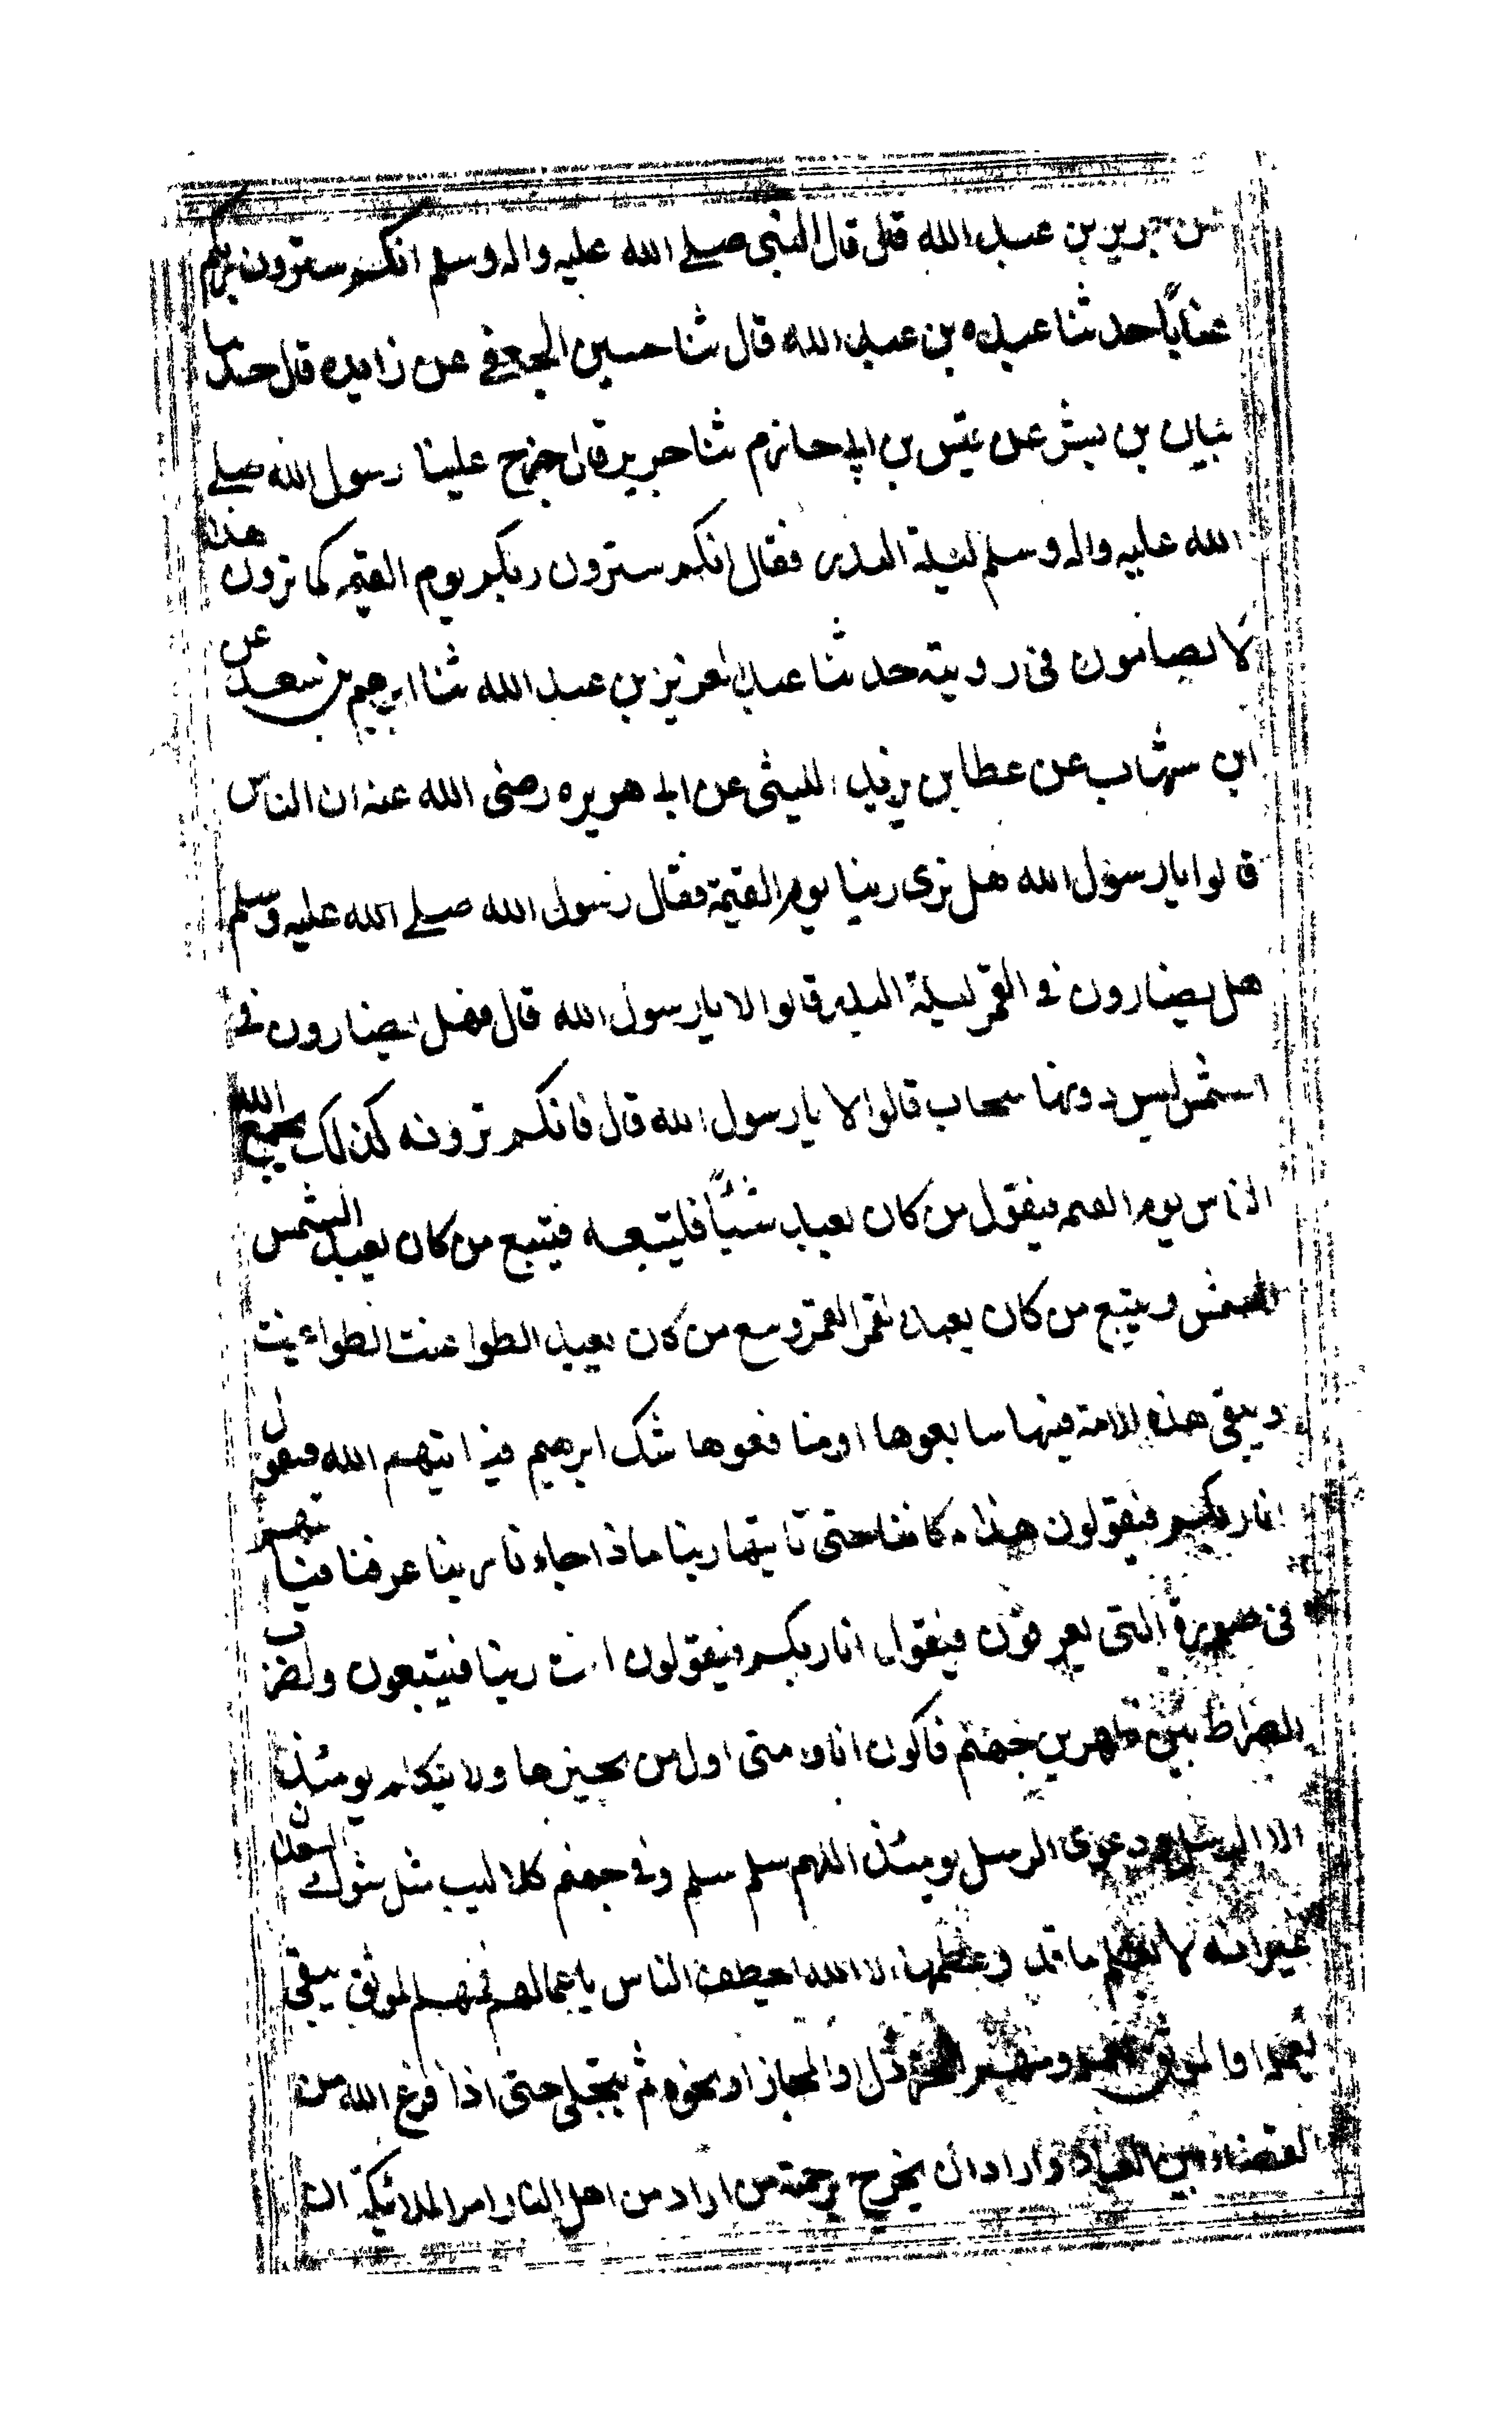 عن جرير بن عبد الله قال قال النبي صلے الله عليه واله وسلم انكم سترون ربكم
عيانا حدثنا عبده بن عبد الله قال ثنا حسين الجعفے عن زايده قال حدثنا
بيان بن بشر عن قيس بن ابي حازم ثنا جرير قال خرج علينا رسول الله صلے
الله عليه واله وسلم ليلة البدر فقال انكم سترون ربكم يوم القيمه كما ترون هذا
لا يضامون فى رويته حدثنا عبد العزيز بن عبد الله ثنا ابرهيم بن سعد عن
ابن شهاب عن عطا بن يزيد الليثى عن ابى هريره رضى الله عنه ان الناس
قالوا يا رسول الله هل نرى ربنا يوم القيمة فقال رسول الله صلے الله عليه وسلم
هل يضارون فى القمر ليلة البدر قالوا لا يا رسول الله قال فهل يضارون فى
الشمس ليس دونها سحاب قالوا لا يا رسول الله قال فانكم ترونه كذلك يجمع الله
الناس يوم القيمه فيقول من كان يعبد شيًا فليتبعه فيتبع من كان يعبد الشمس
الشمس ويتبع من كان يعبد القمر القمر ويتبع من كان يعبد الطواغيت الطواغيت
ويبقى هذه الامة فيها شافعوها او منافقوها شك ابرهيم فياتيهم الله فيقول
انا ربكم فيقولون هذا مكاننا حتى تاتينا ربنا فاذا جاءنا ربنا عرفنا فياتيهم
فى صورة التى يعرفون فيقول انا ربكم فيقولون انت ربنا فيتبعون ويضرب
الصراط بين ظهرين جهنم فاكون انا وامتى اول من يجيزها ولا يتكلم يومئذ
الا الرسل ودعوى الرسل يومئذ اللهم سلم سلم وفى جهنم كلاليب مثل شوك السعدان
غير انه لا يعلم ما قدر عظمها الا الله تخطف الناس باعمالهم فمنهم الموثق بقى
بعمله او الموثق بعمله ومنهم المخردل او المجاز او نحوه ثم يتجلى حتى اذا فرغ الله من
القضاء بين العباد واراد ان يخرج برحمته من اراد من اهل النار امر الملائيكة ان